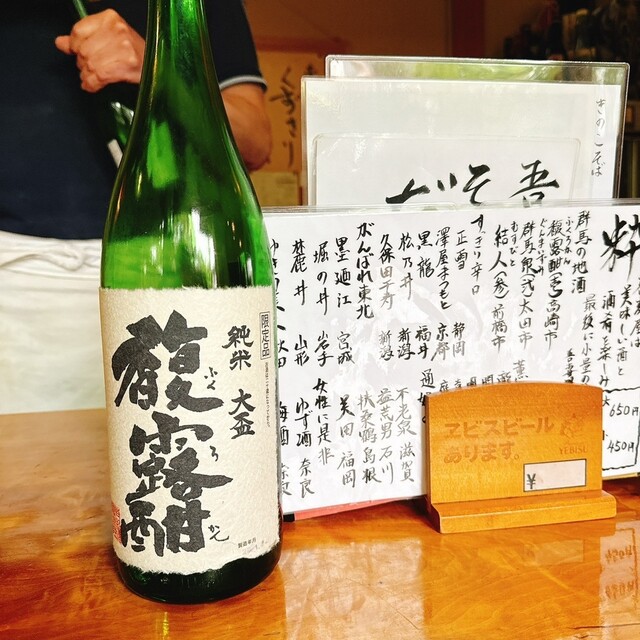 限定品
純米 大盃
馥露酣
ふくろかん
きのこそば
吾
そば
くずきり
粋
美味しい酒と
酒肴を楽しみ
最後に小堂の
650円
450円
群馬の地酒
馥露酣(壱)高崎市
群馬泉(弐)太田市
結人(参)前橋市
むすびと
すっきり辛口
正雪 静岡
澤屋まつもと 京都
黒龍 福井
松乃井 新潟
久保田千寿 新潟
がんばれ東北
墨廼江 宮城
堀の井 岩手
麓井 山形
不老泉 滋賀
益荒男 石川
扶桑鶴 島根
美田 福岡
女性に是非
ゆず酒 奈良
梅酒 奈良
ヱビスビール
あります。
YEBISU
¥